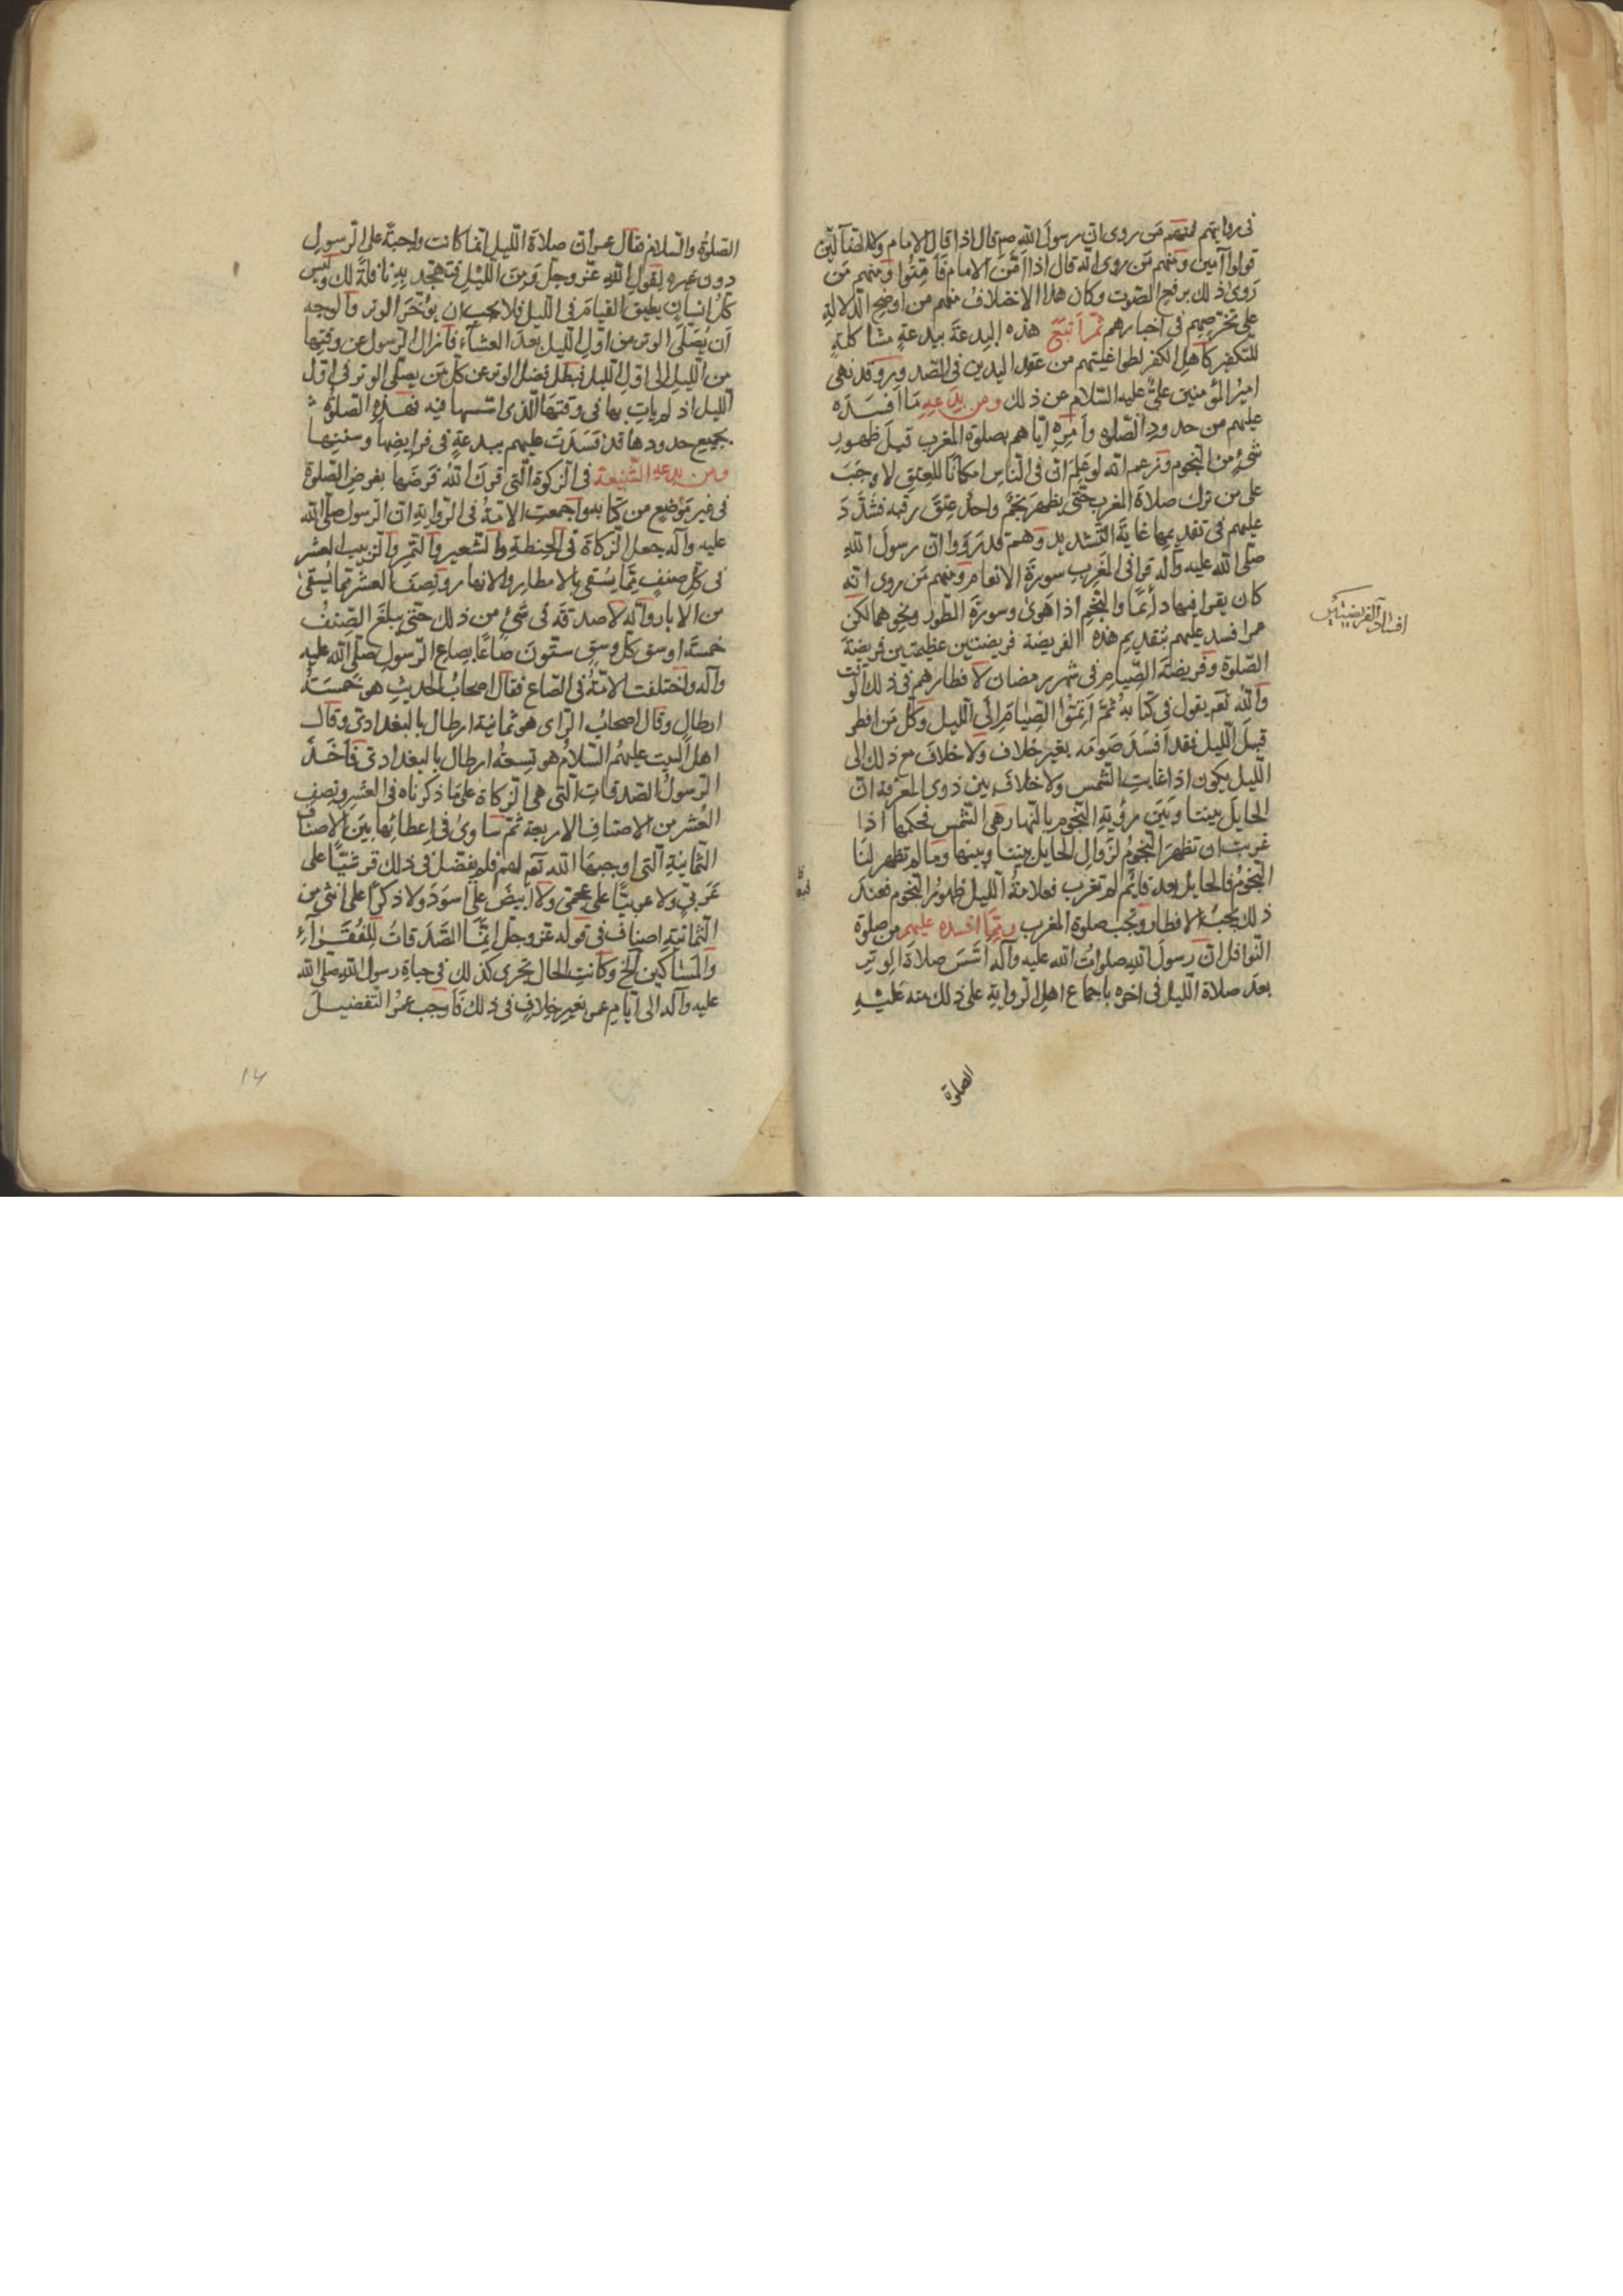 فى روايتهم فمنهم مَن روى ان رسول الله صم قال اذا قال الامام ولا الضآلّين
قولوا آمين ومنهم مَن روى انّه قال اذا اَمَّنَ الامام فاَمِّنُوا ومنهم مَن
رَوىٰ ذلك برفع الصّوت وكان هذا الاختلاف منهم من اوضح الدّلالةِ
على تخرّصهم فى اخبارهم ثمّ اَتبَعَ هذه البدعةَ ببدعةٍ مشاكلةٍ
للتكفير كاهل الكفر لطواغيتهم من عقد اليدين فى الصّدور وقد نهى
اميرُ المؤمنين علىٌّ عليه السّلام عن ذلك ومن بِدَعِهِ مَا اَفسَدَه
عليهم من حدودِ الصّلوه واَمرِهِ ايّاهم بصلوة المغرب قبلَ ظهورِ
شئٍ من النّجوم وزعم انّه لو عَلِمَ انّ فى النّاس امكانًا للعِتقِ لاوجَبَ
على من ترك صلاةَ المغرب حتّى يظهرَ نجمٌ واحدٌ عِتقَ رقبه فشدَّدَ
عليهم فى تقديمها غايةَ التّشديد وهم قد رَوَوا انّ رسول اللهِ
صلّى الله عليه وآله قرا فى المَغرِبِ سورةَ الانعام ومنهم مَن روى انّه
كان يقرا فيها دائمًا والنّجمِ اذا هَوىٰ وسورةَ الطّورِ ونحوهما لكن
عمر افسد عليهم بتقديم هذه الفريضة فريضتين عظيمتين فريضة
الصّلوة وفريضة الصّيام فى شهر رمضان لافطارهم فى ذلك الوقت
والله تعم يقول فى كتابهِ ثمَّ اَتِمّوُا الصِّيامَ اِلَى اللّيل وكلّ مَن افطر
قبل اللّيل فقد اَفسَدَ صَومَه بغير خلاف ولا خلافَ مع ذلك انّ
اللّيل يكون اذا غابت الشّمس ولا خلافَ بين ذوى المعرفة انّ
الحايلَ بيننا وبَينَ رؤيةِ النّجوم بالنّهار هى الشّمس فحكمها اذا
غربت ان تظهرَ النّجومُ لزوالِ الحايل بيننا وبينها وما لم تظهر لنا
النّجومُ فالحايل بعد قائم لم تغرب فعلامةُ اللّيل ظهورُ النّجوم فعند
ذلك يجبُ الافطار وتجب صلوة المغرب وممّا افسده عليهم من صلوة
النّوافل انّ رسولَ الله صلواتُ الله عليه وآله اَسَّسَ صلاةَ الوِترِ
بعدَ صلاة اللّيل فى اخره باجماع اهل الرّوايةِ على ذلك منه عَليْهِ
افساد الفريضتين
الصلوة
الصّلوةُ والسّلام فقال عمر انّ صلاة اللّيل انّها كانت واجبةً على الرّسول
دون غيره لقول الله عزّ وجلّ وَمِنَ اللّيْلِ فتهجّد بِهِ نافلةً لك وليس
كلُّ انسانٍ يطيق القيامَ فى اللّيل فلا يجب ان يؤخّرَ الوتر والوجه
اَن يُصَلَّى الوتر من اوّلِ اللّيل بعدَ العشآء فازال الرّسول عن وقتِها
من اللّيلِ الى اوّل اللّيل فبطل فضل الوتر عن كلّ مَن يصلّى الوتر فى اوّل
اللّيل اذ لم ياتِ بها فى وقتها الّذى اسّسها فيه فهذهِ الصّلوةُ
بجميع حدودها قد فَسَدَت عليهم ببدعةٍ فى فرايضها وسننِها
ومن بدعه الشّنيعة فى الزكوة الّتى قرنَ اللهُ فَرضَها بفرض الصّلوة
فى غير مَوضِعٍ من كتابه واجمعت الامّةُ فى الرّوايةِ انّ الرّسول صلّى الله
عليه وآله جعل الزكاةَ فى الحِنطةِ والشّعير والتّمرِ والزّبيب العشر
فى كلِّ صنفٍ ممّا يُسقى بالامطار والانهار ونِصفَ العشر ممّا يُسقىٰ
من الابار وانّه لا صدقة فى شئٍ من ذلك حتّى يبلغَ الصِّنفُ
خمسةَ اوسق كلّ وسقٍ ستّون صاعًا بصاعِ الرّسول صلّى الله عليه
وآله واختلفت الامّةُ فى الصّاع فقال اصحابُ الحديثِ هو خَمسَةُ
ارطالٍ وقال اصحابُ الرّاى هو ثمانية ارطال بالبغدادىّ وقال
اهل البيت عليهمُ السّلام هو تِسعةُ ارطال بالبغدادىّ فاَخَذَ
الرّسولُ الصّدقاتِ الّتى هى الزّكاة على ما ذكرناه فى العشر ونصفِ
العُشر من الاصناف الاربعة ثمّ ساوىٰ فى اِعطائِها بينَ الاصناف
الثّمانيةِ الّتى اوجبها الله تعم لهم فلم يفضّل فى ذلك قرشيًّا على
عَرَبىٍّ ولا عربيًّا على عجمىّ ولا ابيضَ على اسوَدَ ولا ذكرًا على انثى من
الثّمانيةِ اصناف فى قوله عزّ وجلّ اِنّمَا الصَّدَقاتُ لِلفُقَرآءِ
والمَسٰاكين الخ وكانت الحال تجرى كذلك فى حياةِ رسول الله صلّى الله
عليه وآله الى ايّامِ عمر بغير خِلافٍ فى ذلك فاَوجب عمرُ التّفضيلَ
۱۴